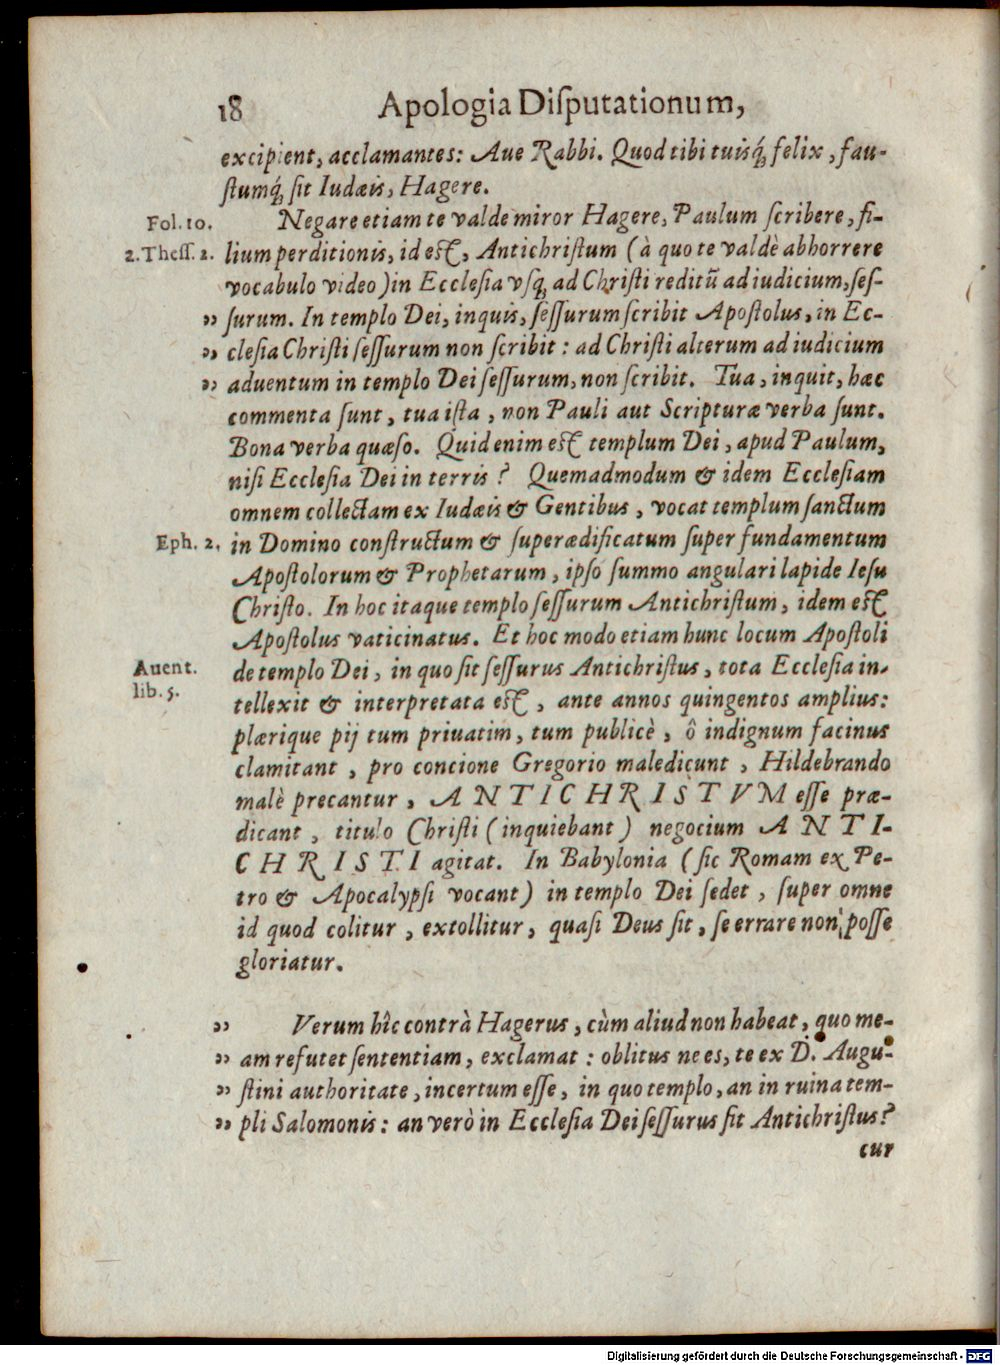 18 Apologia Diſputationum,
excipient, acclamantes: Aue Rabbi. Quod tibi tuisq́; felix, fau-
ſtumq́; ſit Iudæis, Hagere.
Fol. 10. Negare etiam te valde miror Hagere, Paulum ſcribere, fi-
2. Theſſ. 2. lium perditionis, id eſt, Antichriſtum (à quo te valdè abhorrere
vocabulo video) in Eccleſia vſq; ad Chriſti reditū ad iudicium, ſeſ-
„ ſurum. In templo Dei, inquis, ſeſſurum ſcribit Apoſtolus, in Ec-
„ cleſia Chriſti ſeſſurum non ſcribit: ad Chriſti alterum ad iudicium
„ aduentum in templo Dei ſeſſurum, non ſcribit. Tua, inquit, hæc
commenta ſunt, tua iſta, non Pauli aut Scripturæ verba ſunt.
Bona verba quæſo. Quid enim eſt templum Dei, apud Paulum,
niſi Eccleſia Dei in terris? Quemadmodum & idem Eccleſiam
omnem collectam ex Iudæis & Gentibus, vocat templum ſanctum
Eph. 2. in Domino conſtructum & ſuperædificatum ſuper fundamentum
Apoſtolorum & Prophetarum, ipſo ſummo angulari lapide Ieſu
Chriſto. In hoc itaque templo ſeſſurum Antichriſtum, idem eſt
Apoſtolus vaticinatus. Et hoc modo etiam hunc locum Apoſtoli
Auent. de templo Dei, in quo ſit ſeſſurus Antichriſtus, tota Eccleſia in-
lib. 5. tellexit & interpretata eſt, ante annos quingentos amplius:
plærique pij tum priuatim, tum publicè, ô indignum facinus
clamitant, pro concione Gregorio maledicunt, Hildebrando
malè precantur, ANTICHRISTVM eſſe præ-
dicant, titulo Chriſti (inquiebant) negocium ANTI-
CHRISTI agitat. In Babylonia (ſic Romam ex Pe-
tro & Apocalypſi vocant) in templo Dei ſedet, ſuper omne
id quod colitur, extollitur, quaſi Deus ſit, ſe errare non poſſe
gloriatur.
„ Verum hîc contrà Hagerus, cùm aliud non habeat, quo me-
„ am refutet ſententiam, exclamat: oblitus ne es, te ex D. Augu-
„ ſtini authoritate, incertum eſſe, in quo templo, an in ruina tem-
„ pli Salomonis: an verò in Eccleſia Dei ſeſſurus ſit Antichriſtus?
cur
Digitalisierung gefördert durch die Deutsche Forschungsgemeinschaft - DFG